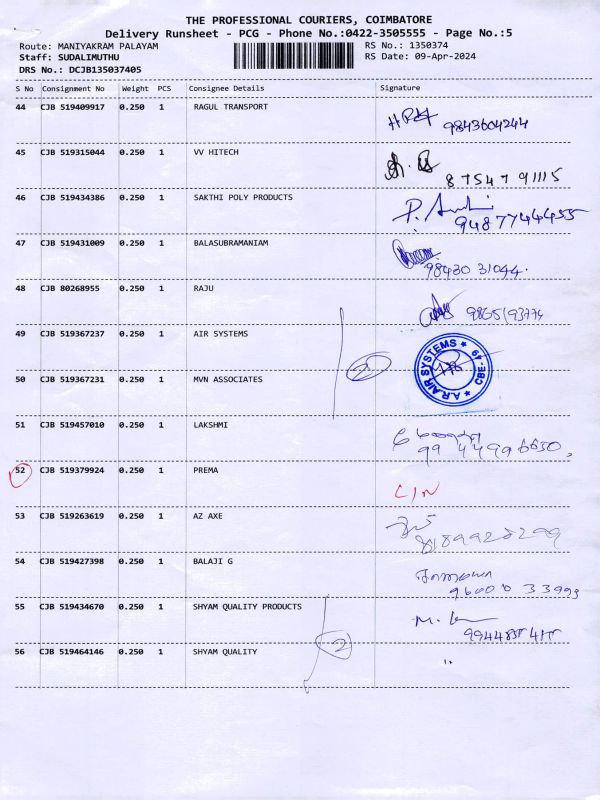 THE PROFESSIONAL COURIERS, COIMBATORE
Delivery Runsheet - PCG - Phone No.:0422-3505555 - Page No.:5
Route: MANIYAKRAM PALAYAM RS No.: 1350374
Staff: SUDALIMUTHU RS Date: 09-Apr-2024
DRS No.: DCJB135037405
S No Consignment No Weight PCS Consignee Details Signature
44 CJB 519409917 0.250 1 RAGUL TRANSPORT
9843604244
45 CJB 519315044 0.250 1 VV HITECH
8754791115
46 CJB 519434386 0.250 1 SAKTHI POLY PRODUCTS
9487744455
47 CJB 519431009 0.250 1 BALASUBRAMANIAM
98430 31044.
48 CJB 80268955 0.250 1 RAJU
9865193774
49 CJB 519367237 0.250 1 AIR SYSTEMS
A.R.AIR SYSTEMS ★ CBE-49 ★
50 CJB 519367231 0.250 1 MVN ASSOCIATES
51 CJB 519457010 0.250 1 LAKSHMI
52 CJB 519379924 0.250 1 PREMA
C/N
53 CJB 519263619 0.250 1 AZ AXE
8189928299
54 CJB 519427398 0.250 1 BALAJI G
96000 33993
55 CJB 519434670 0.250 1 SHYAM QUALITY PRODUCTS
2
56 CJB 519464146 0.250 1 SHYAM QUALITY